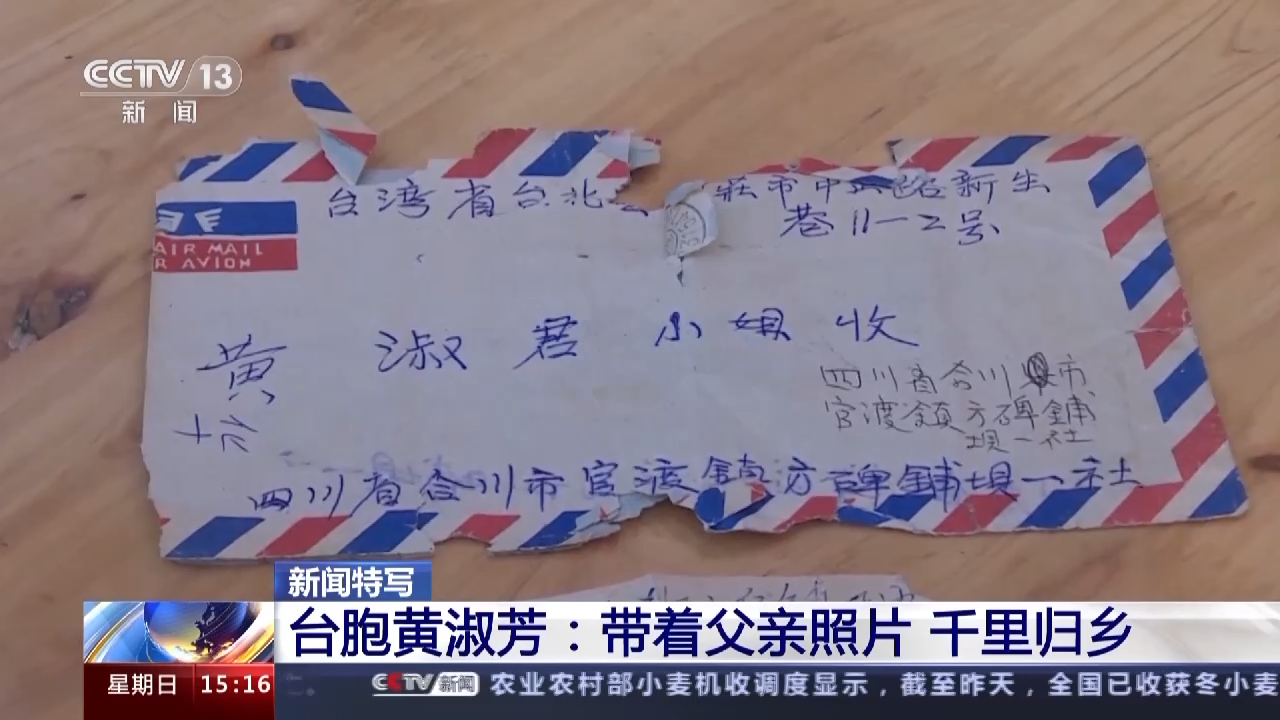 CCTV 13
新闻
台湾省台北 庄市中 路新生
巷11-2号
AIR MAIL
R AVION
黄淑君小姐收
四川省合川市
官渡镇方碑铺
坝一社
四川省合川市官渡镇方碑铺坝一社
新闻特写
台胞黄淑芳：带着父亲照片 千里归乡
星期日 15:16 CCTV新闻 农业农村部小麦机收调度显示，截至昨天，全国已收获冬小麦